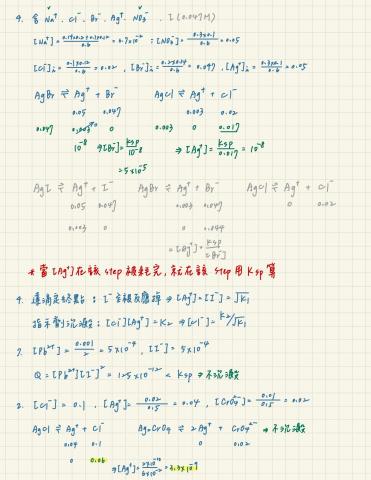 9. 含 Na⁺. Cl⁻. Br⁻. Ag⁺. NO₃⁻ . I (0.047M)
[NO₃⁻] = 0.3×0.1/0.6 = 0.05
[Cl⁻]ᵢₙ = 0.1×0.12/0.6 = 0.02 , [Ag⁺]ᵢₙ = 0.3×0.1/0.6 = 0.05
AgBr ⇌ Ag⁺ + Br⁻ AgCl ⇌ Ag⁺ + Cl⁻
0.05 0.047 0.003 0.02
0.047 0.003 0 0.003 0 0.017
10⁻⁸ ⇒[Br⁻] = Ksp/10⁻⁸ ⇒ [Ag⁺] = Ksp/0.017 = 10⁻⁸
= 5×10⁻⁵
AgI ⇌ Ag⁺ + I⁻ AgBr ⇌ Ag⁺ + Br⁻ AgCl ⇌ Ag⁺ + Cl⁻
0.05 0.047 0.003 0.047 0 0.02
0.003 0 0 0.044
= [Ag⁺] = Ksp/[Br⁻]
* 當 [Ag⁺] 在該 step 被耗完, 就在該 step 用 Ksp 算
4. 達滴定終點 : I⁻ 全被反應掉 ⇒ [Ag⁺] = [I⁻] = √K₁
指示劑沉澱 : [Cl⁻][Ag⁺] = K₂ ⇒ [Cl⁻] = K₂/√K₁
7. [Pb²⁺] = 0.001/2 = 5×10⁻⁴ , [I⁻] = 5×10⁻⁴
Q = [Pb²⁺][I⁻]² = 125×10⁻¹² < Ksp ⇒ 不沉澱
2. [Cl⁻] = 0.1 , [Ag⁺] = 0.02/0.5 = 0.04 , [CrO₄²⁻] = 0.01/0.5 = 0.02
AgCl ⇌ Ag⁺ + Cl⁻ Ag₂CrO₄ ⇌ 2Ag⁺ + CrO₄²⁻ ⇒ 不沉澱
0.04 0.1 0 0.02
0 0.06